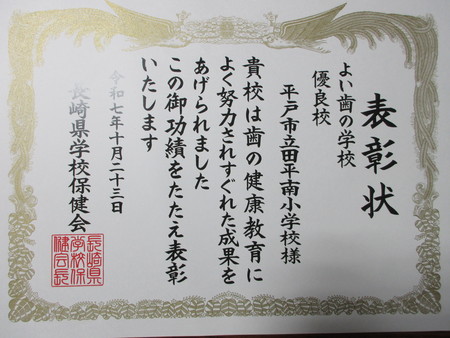 表彰状
よい歯の学校
優良校
平戸市立田平南小学校様
貴校は歯の健康教育に
よく努力されすぐれた成果を
あげられました
この御功績をたたえ表彰
いたします
令和七年十月二十三日
長崎県学校保健会
長崎県
学校保
健会長